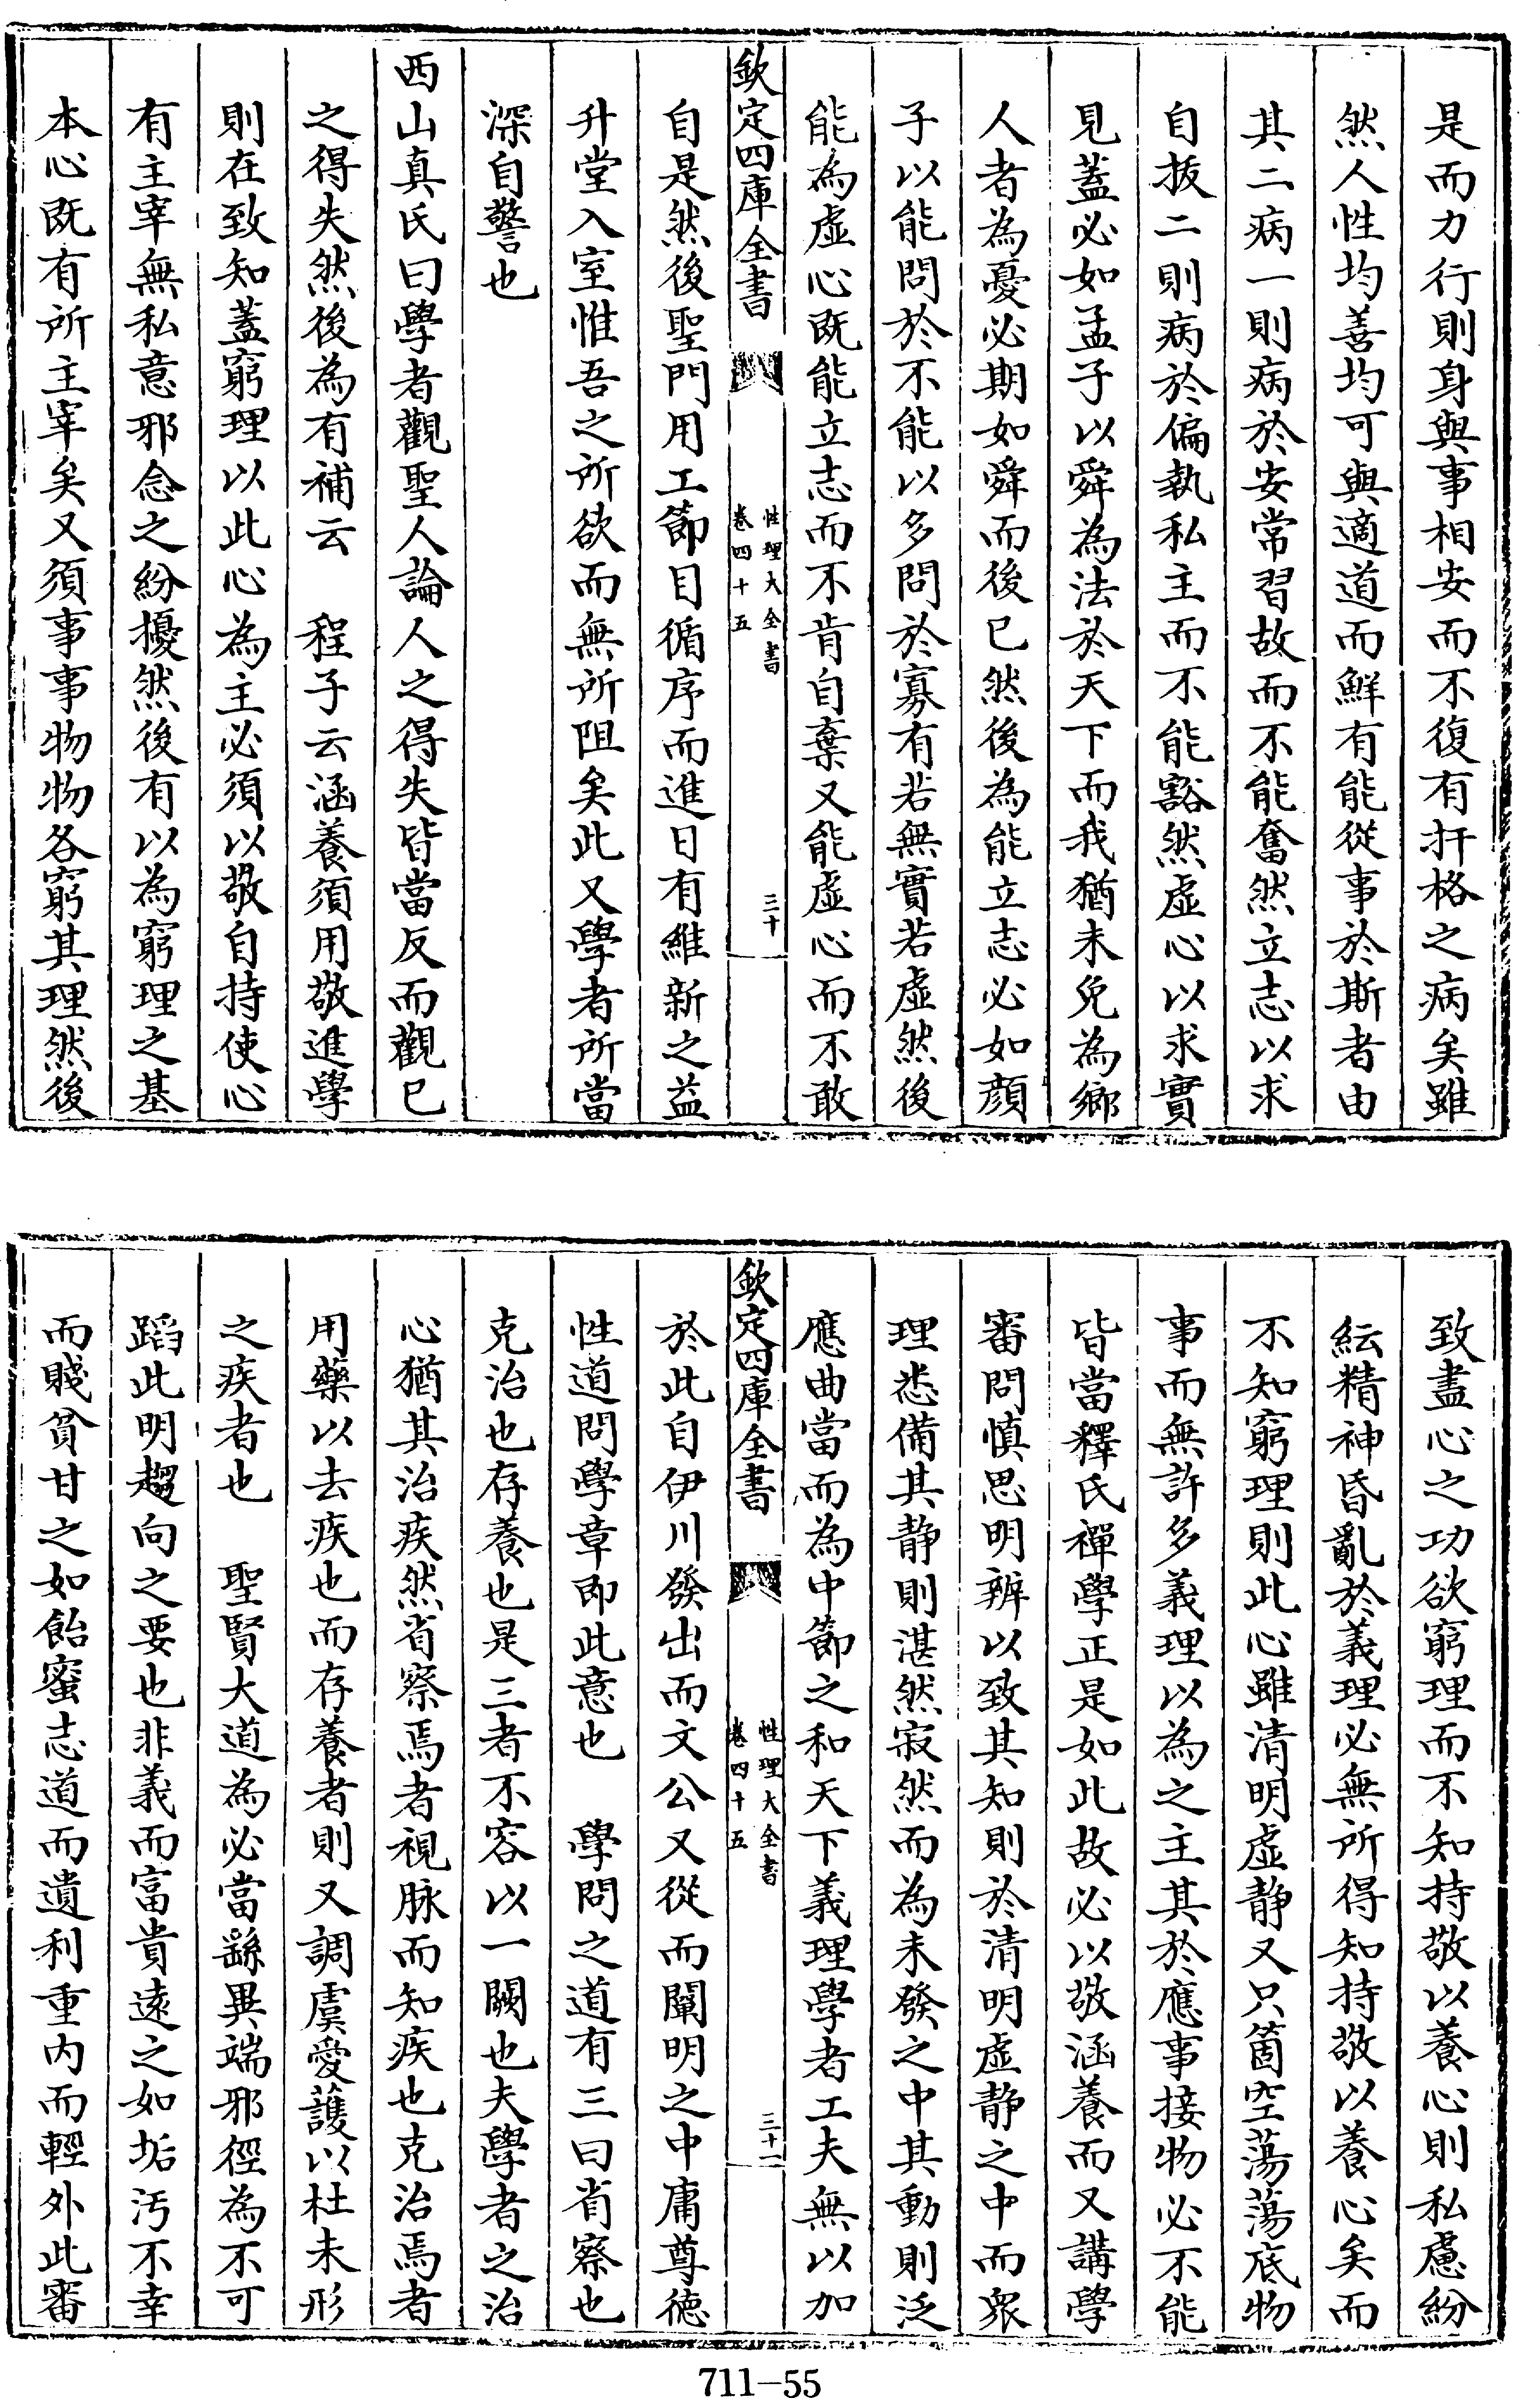 是而力行則身與事相安而不復有扞格之病矣雖
然人性均善均可與適道而鮮有能從事於斯者由
其二病一則病於安常習故而不能奮然立志以求
自拔二則病於偏執私主而不能豁然虛心以求實
見蓋必如孟子以舜為法於天下而我猶未免為鄉
人者為憂必期如舜而後已然後為能立志必如顔
子以能問於不能以多問於寡有若無實若虛然後
能為虛心既能立志而不肯自棄又能虛心而不敢
欽定四庫全書 性理大全書 卷四十五 三十
自是然後聖門用工節目循序而進日有維新之益
升堂入室惟吾之所欲而無所阻矣此又學者所當
深自警也
西山真氏曰學者觀聖人論人之得失皆當反而觀已
之得失然後為有補云 程子云涵養須用敬進學
則在致知蓋窮理以此心為主必須以敬自持使心
有主宰無私意邪念之紛擾然後有以為窮理之基
本心既有所主宰矣又須事事物物各窮其理然後
致盡心之功欲窮理而不知持敬以養心則私慮紛
紜精神昏亂於義理必無所得知持敬以養心矣而
不知窮理則此心雖清明虛静又只箇空蕩蕩底物
事而無許多義理以為之主其於應事接物必不能
皆當釋氏禪學正是如此故必以敬涵養而又講學
審問慎思明辨以致其知則於清明虛静之中而衆
理悉備其静則湛然寂然而為未發之中其動則泛
應曲當而為中節之和天下義理學者工夫無以加
欽定四庫全書 性理大全書 卷四十五 三十一
於此自伊川發出而文公又從而闡明之中庸尊德
性道問學章即此意也 學問之道有三曰省察也
克治也存養也是三者不容以一闕也夫學者之治
心猶其治疾然省察焉者視脉而知疾也克治焉者
用藥以去疾也而存養者則又調虞愛護以杜未形
之疾者也 聖賢大道為必當繇異端邪徑為不可
蹈此明趨向之要也非義而富貴遠之如垢汚不幸
而賤貧甘之如飴蜜志道而遺利重内而輕外此審
711-55